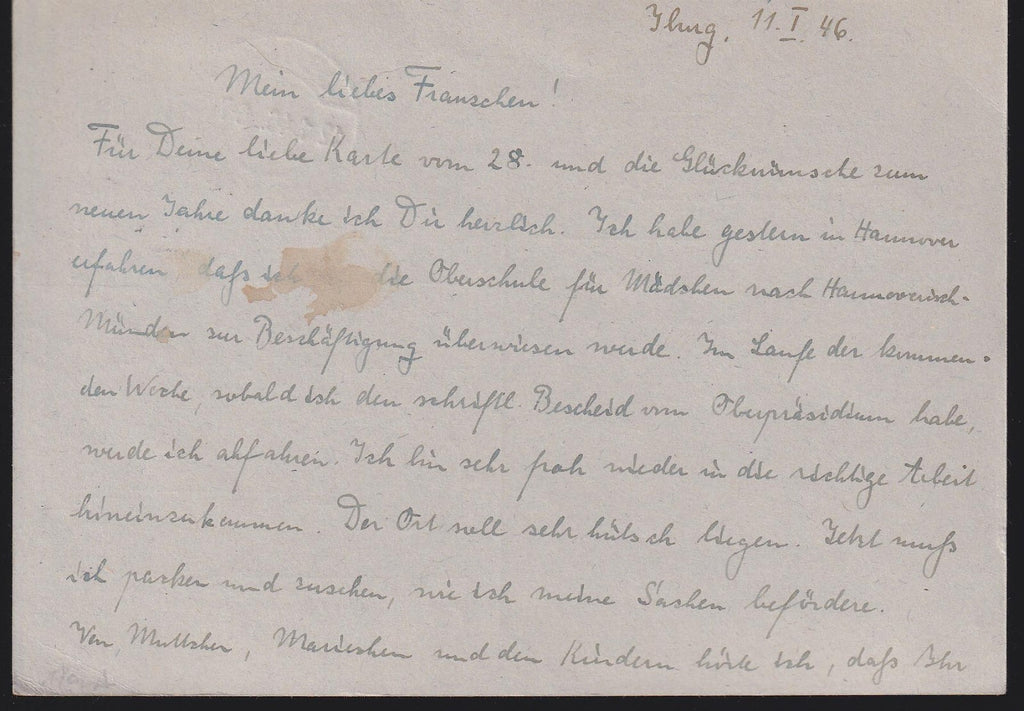 Iburg, 11. I. 46.
Mein liebes Fränzchen!
Für Deine liebe Karte vom 28. und die Glückwünsche zum
neuen Jahre danke ich Dir herzlich. Ich habe gestern in Hannover
erfahren daß ich die Oberschule für Mädchen nach Hannoverisch-
Münden zur Beschäftigung überwiesen werde. Im Laufe der kommen-
den Woche, sobald ich den schriftl. Bescheid vom Oberpräsidium habe,
werde ich abfahren. Ich bin sehr froh wieder in die richtige Arbeit
hineinzukommen. Der Ort soll sehr hübsch liegen. Jetzt muß
ich packen und zusehen, wie ich meine Sachen befördere.
Von Muttchen, Mariechen und den Kindern hörte ich, daß Ihr